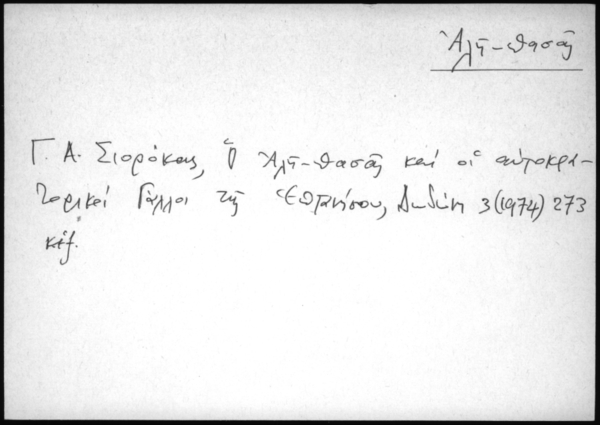 Ἀλῆ-πασᾶς
Γ. Α. Σιορόκας, Ὁ Ἀλῆ-πασᾶς καὶ οἱ αὐτοκρα-
τορικοὶ Γάλλοι τῆς Ἑπτανήσου, Δωδώνη 3 (1974) 273
κἑξ.